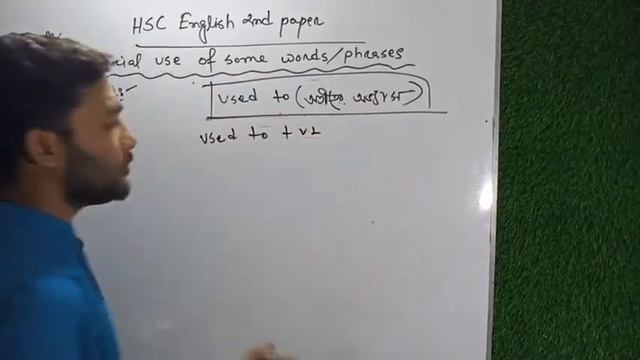 HSC English 2nd paper
use of some words/phrases
used to (অতীত অভ্যাস)
used to + v1